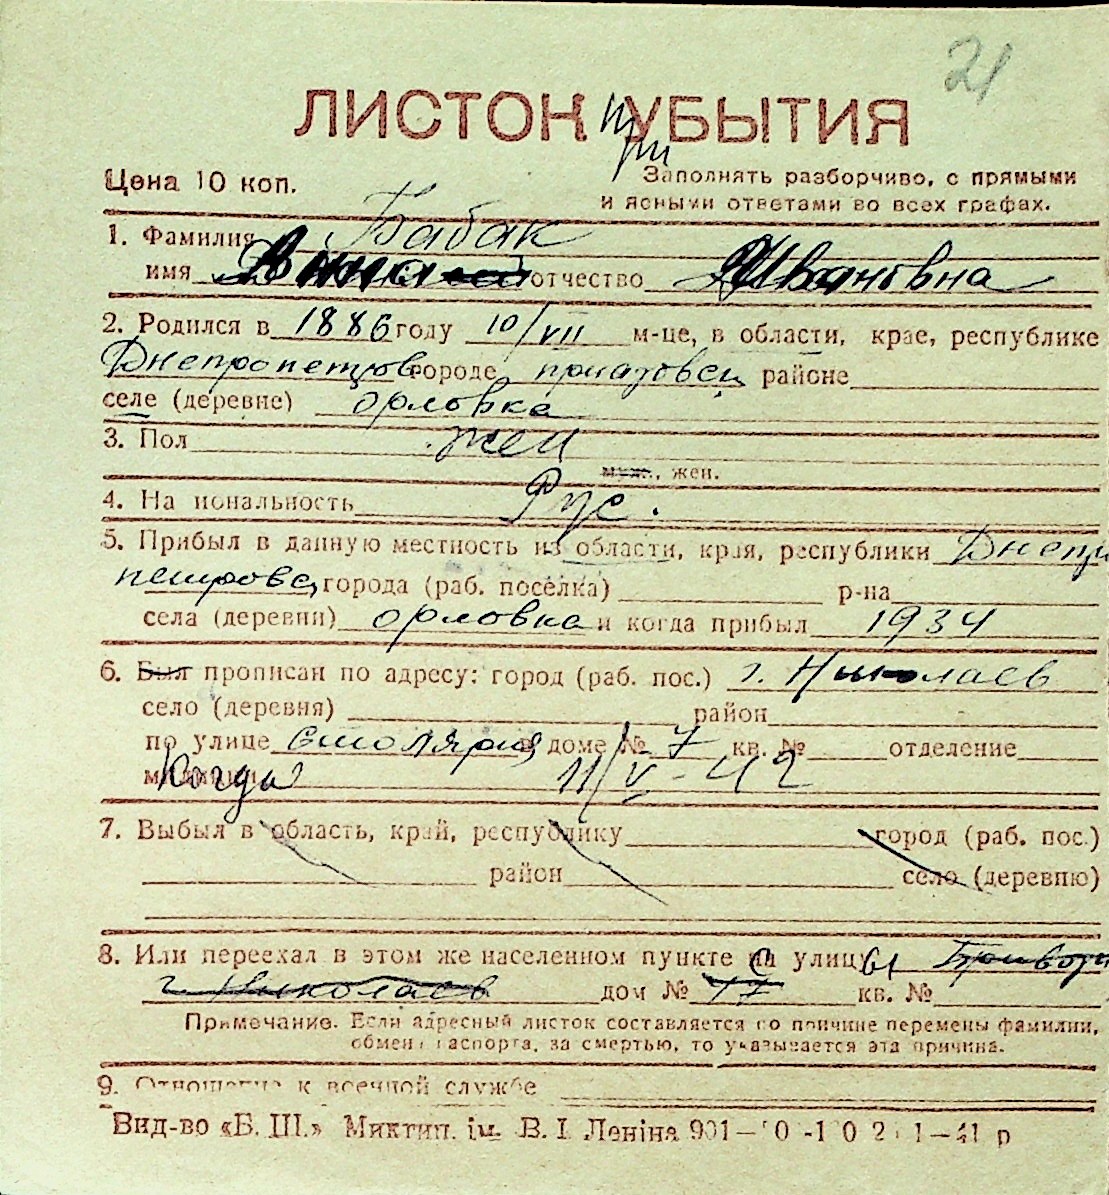 21
ЛИСТОК при УБЫТИЯ
Цена 10 коп.
Заполнять разборчиво, с прямыми
и ясными ответами во всех графах.
1. Фамилия Бабак
имя Анна отчество Ивановна
2. Родился в 1886 году 10/VII м-це, в области, крае, республике
Днепропетров городе приазовск районе
селе (деревне) орловка
3. Пол жен
муж., жен.
4. Национальность Рус.
5. Прибыл в данную местность из области, края, республики Днепро
петровс города (раб. посёлка) р-на
села (деревни) орловка и когда прибыл 1934
6. Был прописан по адресу: город (раб. пос.) г. Николаев
село (деревня) район
по улице столярная доме № 7 кв. № отделение
милиции Когда 11/V-42
7. Выбыл в область, край, республику город (раб. пос.)
район село (деревню)
8. Или переехал в этом же населенном пункте с улицы
г. Николаев дом № 17 кв. №
Примечание. Если адресный листок составляется по причине перемены фамилии,
обмена паспорта, за смертью, то указывается эта причина.
9. Отношение к военной службе
Вид-во «Б. Ш.» Миктип. ім. В. І. Леніна